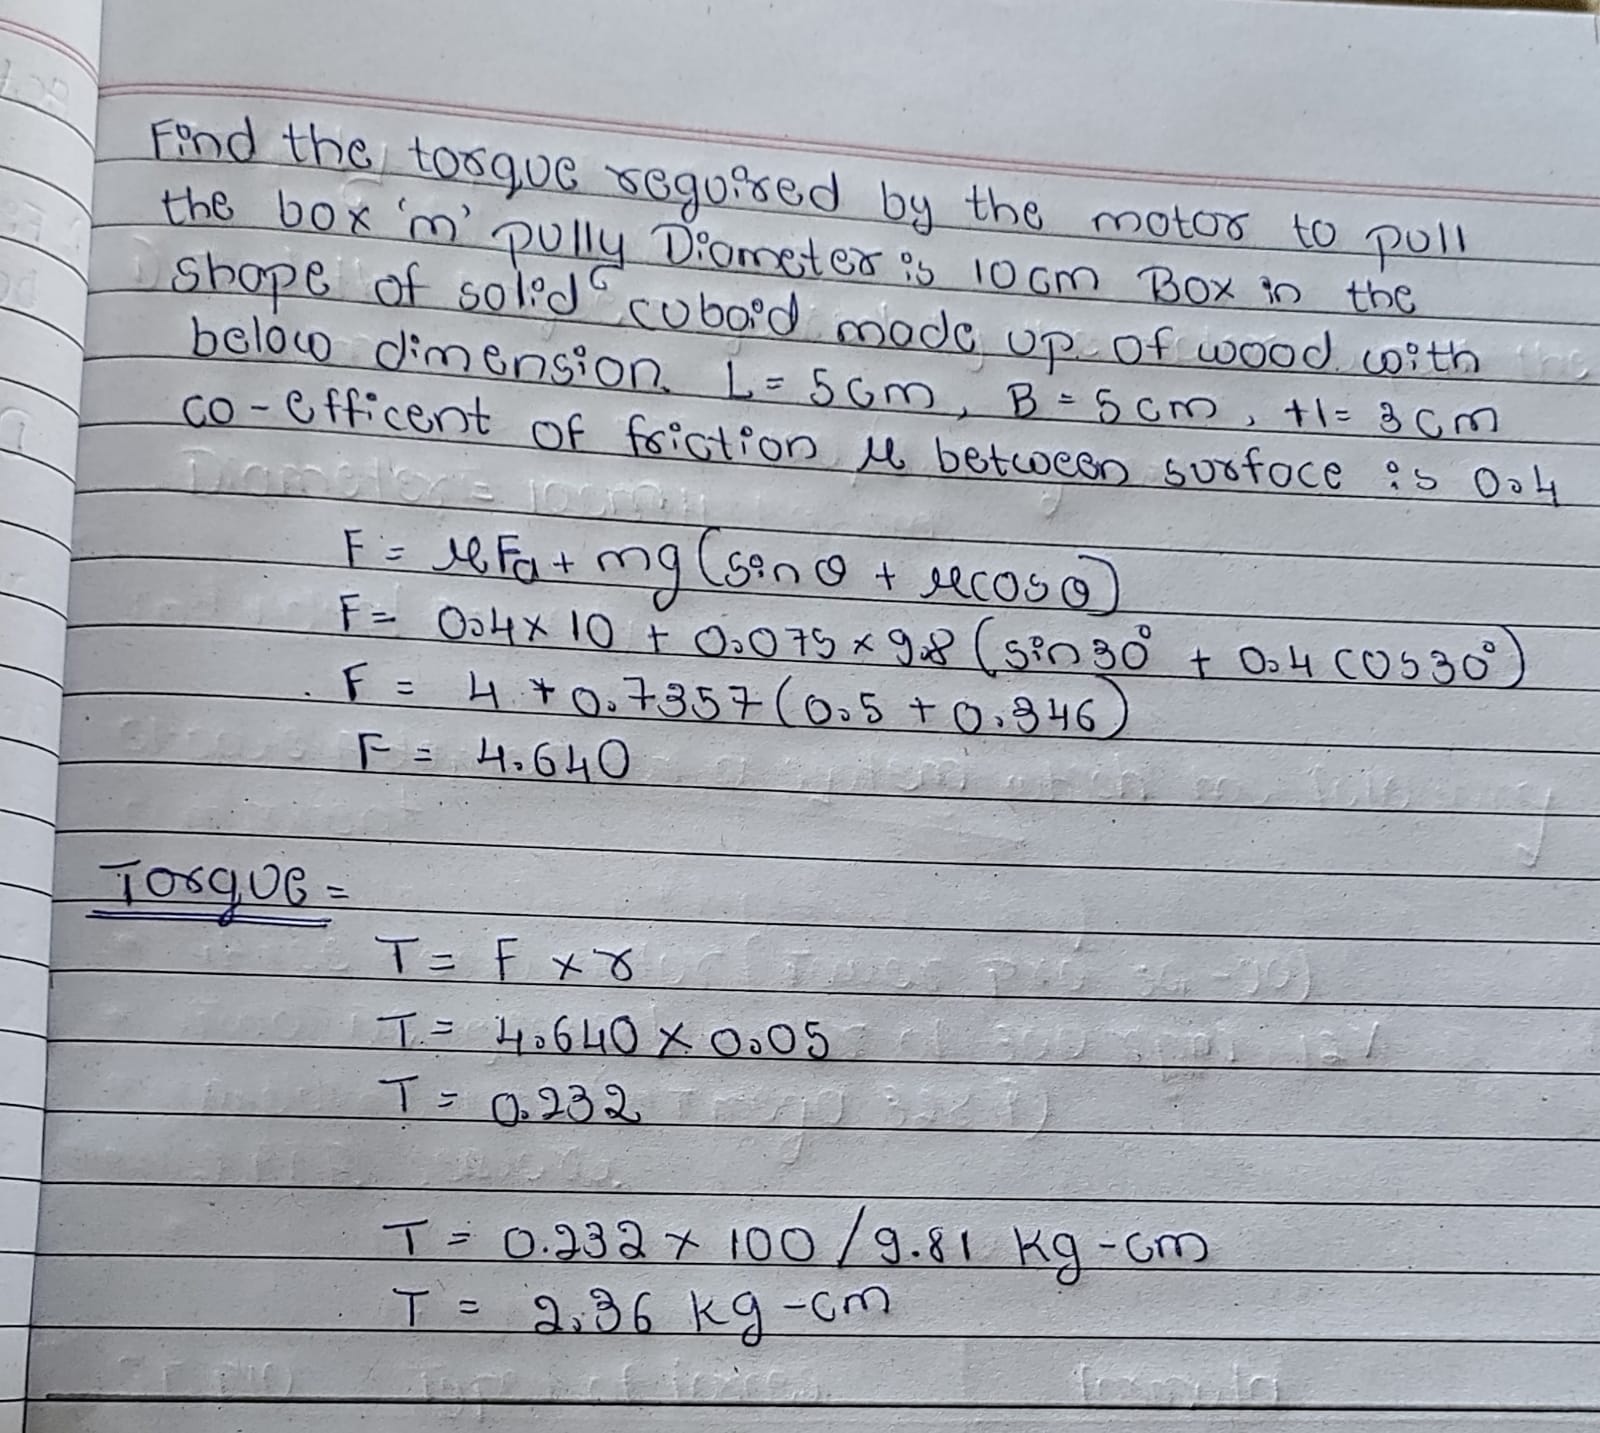 Find the torque required by the motor to pull
the box 'm' pully Diameter is 10 cm Box in the
shape of solid cuboid made up of wood with
below dimension. L = 5 cm, B = 5 cm, H = 3 cm
co-efficent of friction μ between surface is 0.4
F = μFa + mg (sin θ + μcos θ)
F = 0.4 × 10 + 0.075 × 9.8 (sin 30° + 0.4 cos 30°)
F = 4 + 0.7357 (0.5 + 0.346)
F = 4.640
Torque =
T = F × r
T = 4.640 × 0.05
T = 0.232
T = 0.232 × 100 / 9.81 kg-cm
T = 2.36 kg-cm